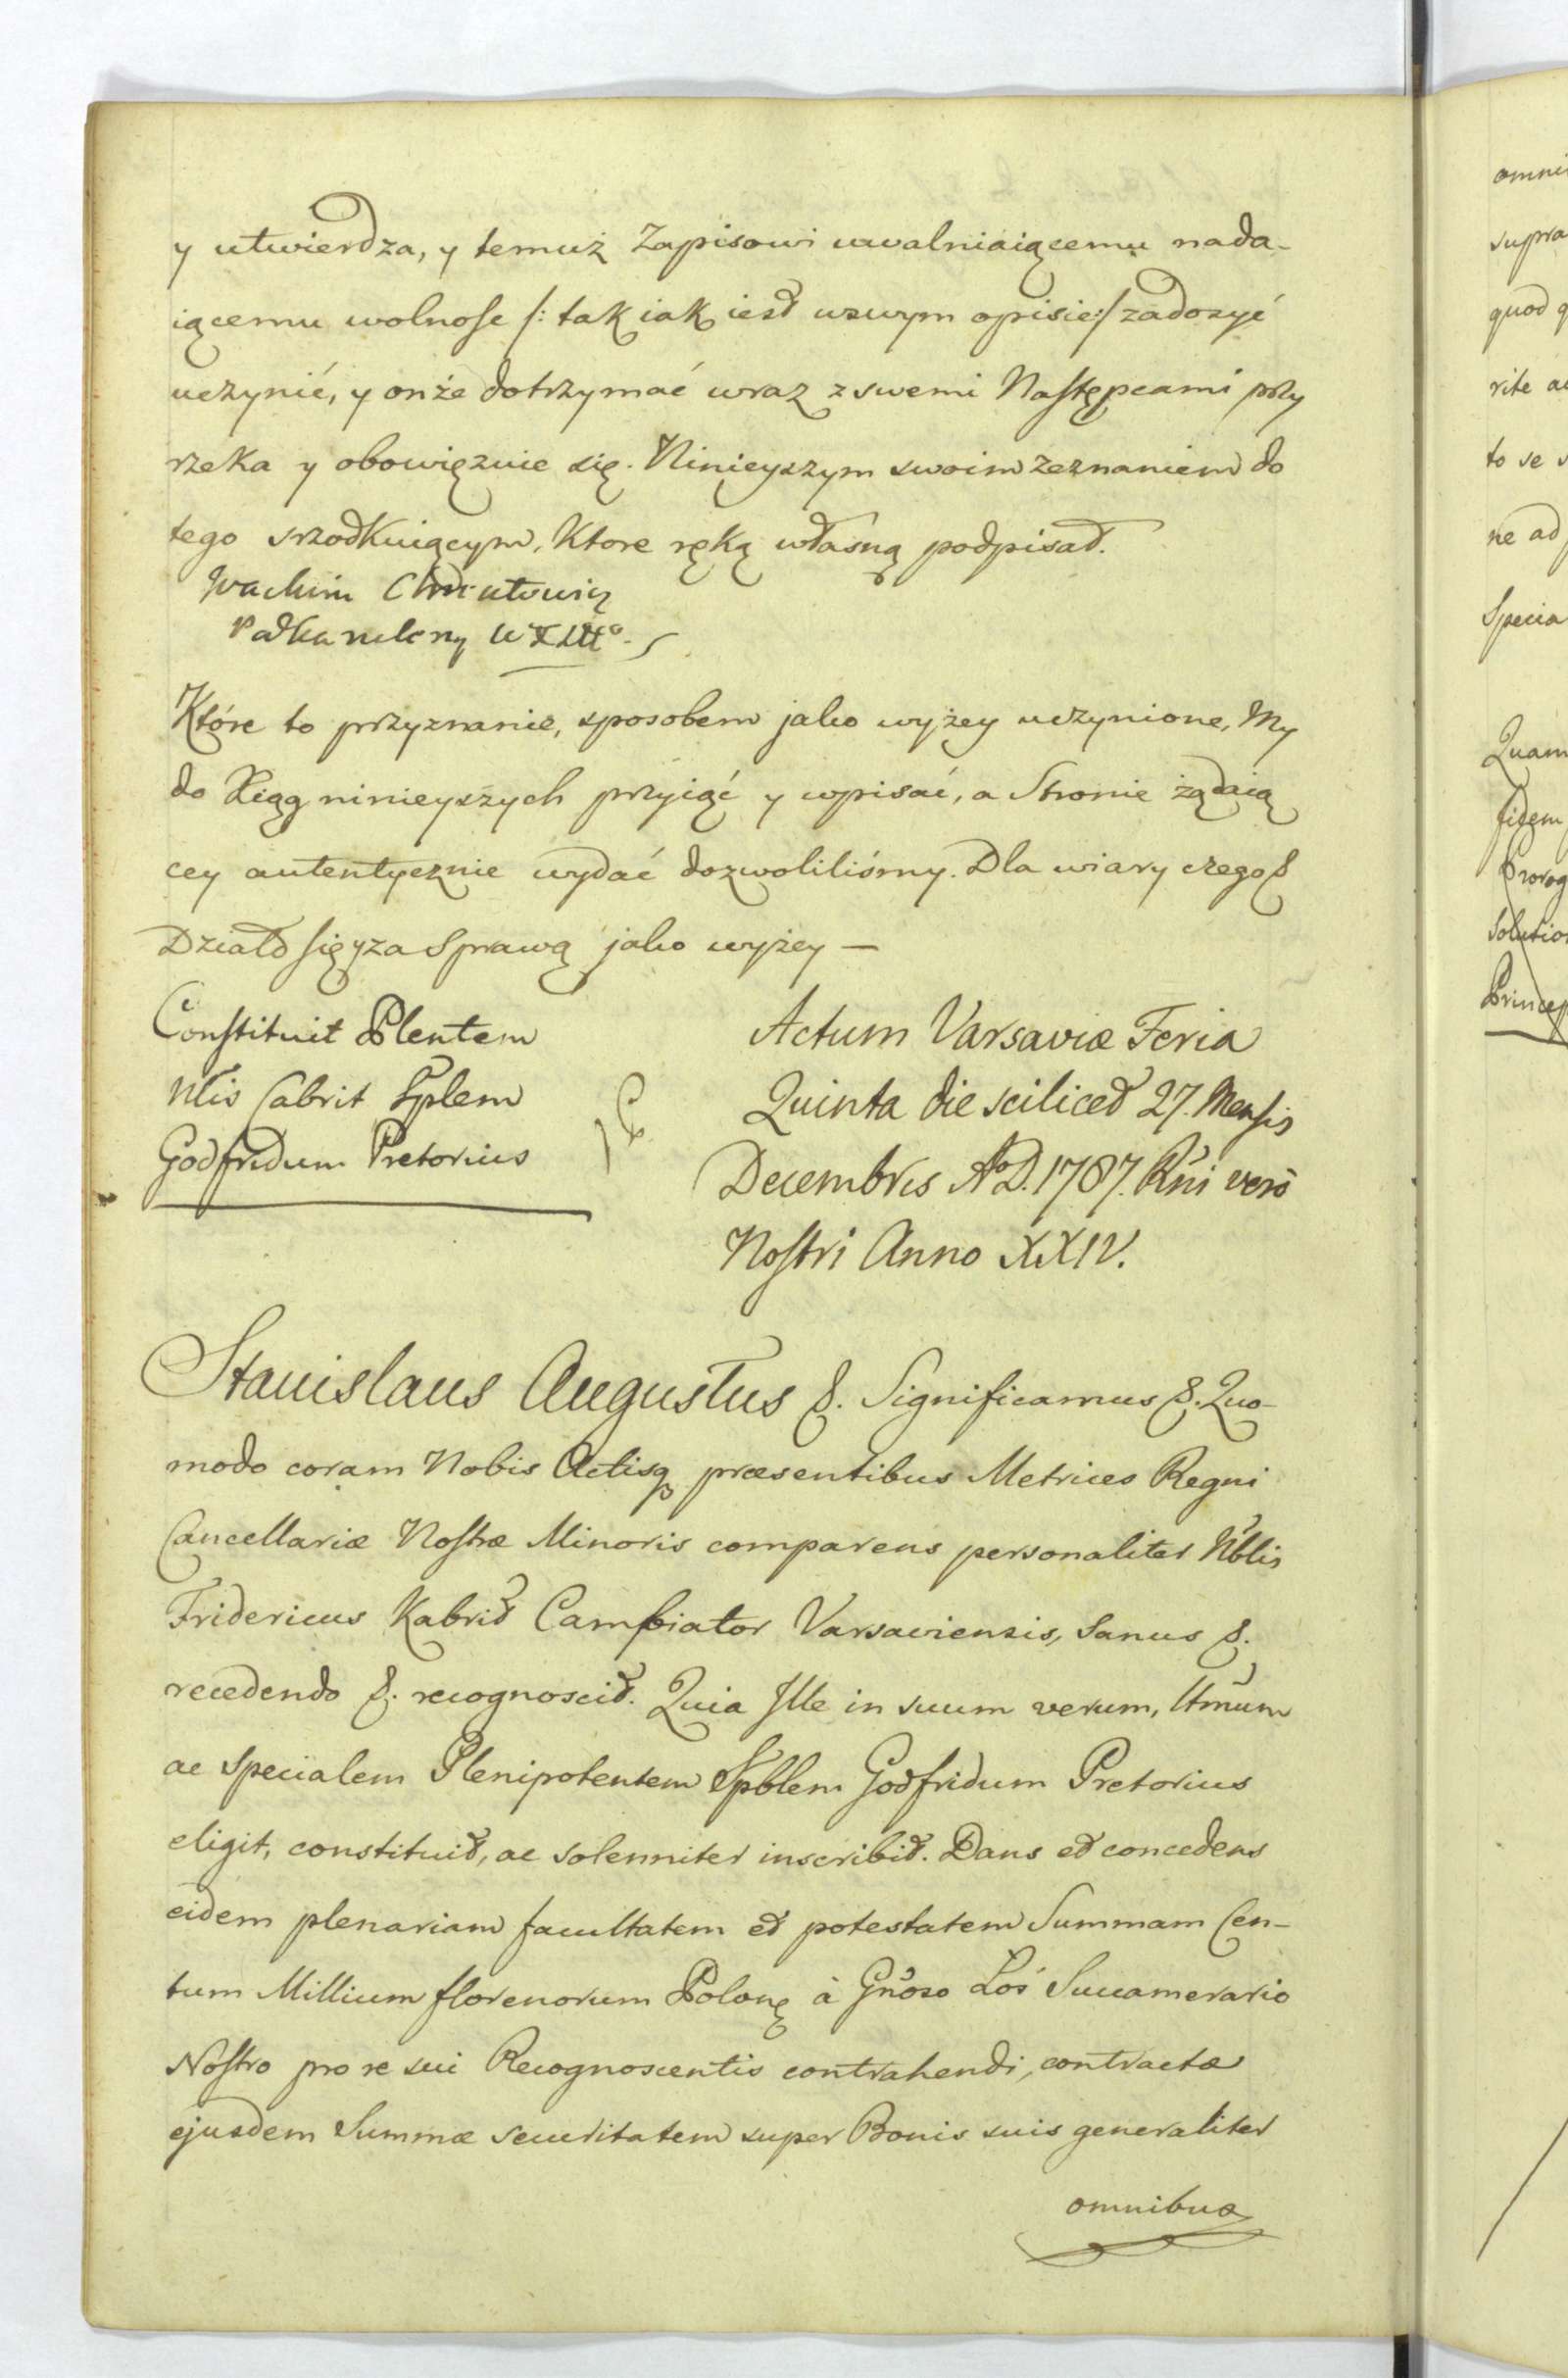 y utwierdza, y temuż Zapisowi uwalniaiącemu nada-
iącemu wolnosc /: tak iak iest w swym opisie :/ zadosyć
uczynić, y onże dotrzymać wraz z swemi Następcami przy
rzeka y obowięzuie się. Ninieyszym swoim zeznaniem do
tego srzodkuiącym, Ktore ręką własną podpisał.
Które to przyznanie, sposobem jako wyżey uczynione, My
do Xiąg ninieyszych przyiąć y wpisać, a Stronie żądaią
cey autentycznie wydać dozwoliliśmy. Dla wiary czego &
Działo się y za Sprawą jako wyżey —
Constituit Plentem
Nlis Cabrit Splem
Godfridum Pretorius
Actum Varsaviæ Feria
Quinta die scilicet 27. Mensis
Decembris A.D. 1787. Rni verò
Nostri Anno XXIV.
Stanislaus Augustus &. Significamus &. Quo-
modo coram Nobis Actisq præsentibus Metrices Regni
Cancellariæ Nostræ Minoris comparens personaliter Nblis
Fridericus Kabrit Cambiator Varsaviensis, sanus &.
recedendo &. recognoscit. Quia Ille in suum verum, ltmum
ac specialem Plenipotentem Spblem Godfridum Pretorius
eligit, constituit, ac solenniter inscribit. Dans et concedens
eidem plenariam facultatem et potestatem Summam Cen-
tum Millium florenorum Polonę à Gnoso Łoś Succamerario
Nostro pro re sui Recognoscentis contrahendi, contractæ
ejusdem Summæ securitatem super Bonis suis generaliter
omnibus
omni
supra
quod q
rite a
to se s
ne ad
Specia
Quam
fidem
Prorog
Solutio
Princep